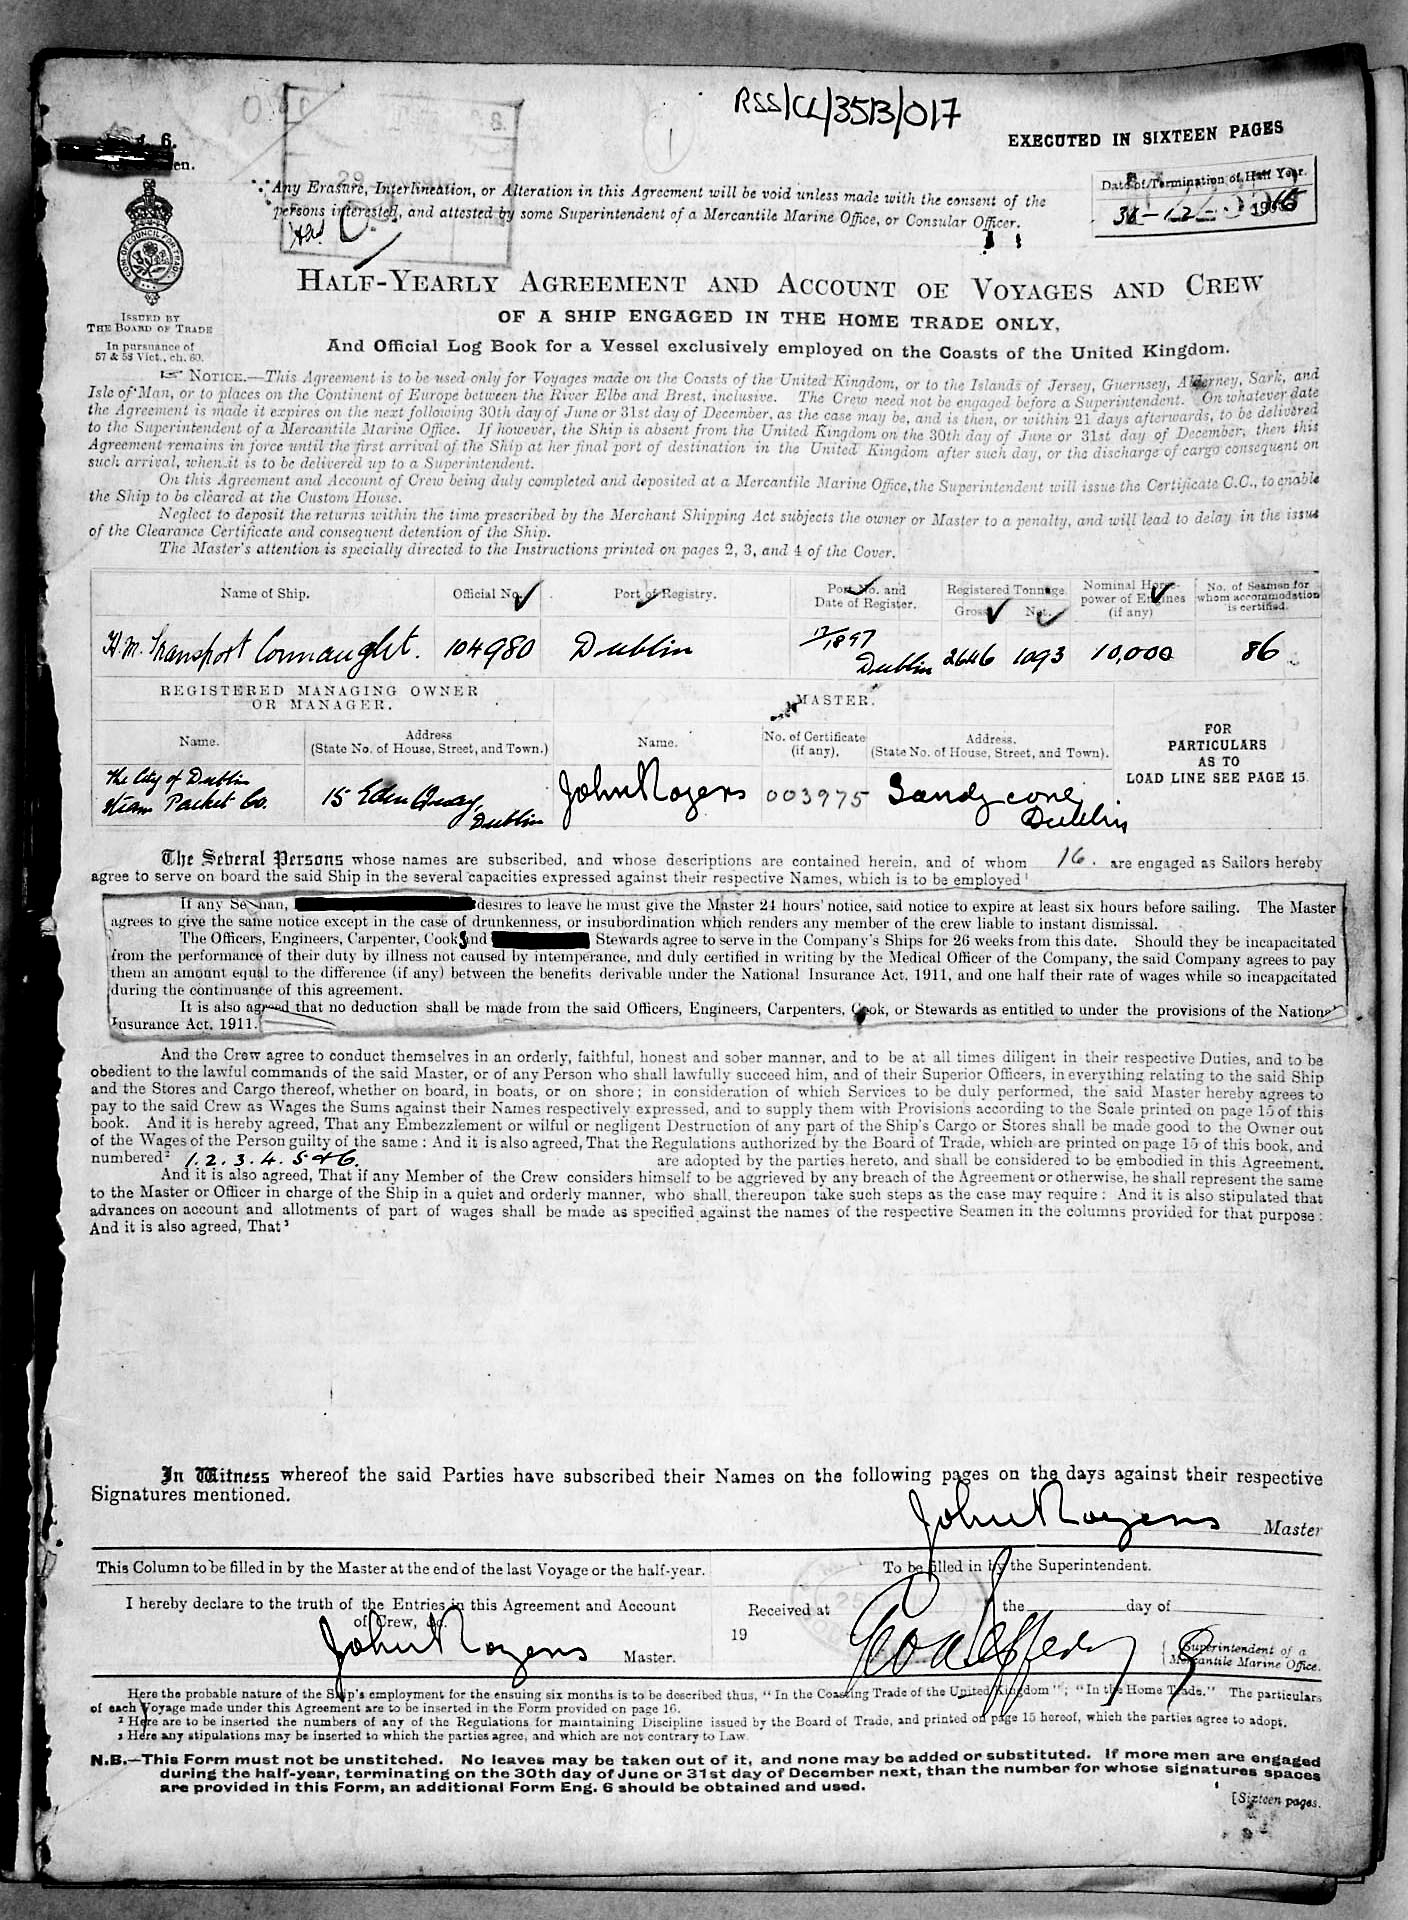 RSS/CL/3513/017
EXECUTED IN SIXTEEN PAGES
6.
en.
Any Erasure, Interlineation, or Alteration in this Agreement will be void unless made with the consent of the
persons interested, and attested by some Superintendent of a Mercantile Marine Office, or Consular Officer.
Date of Termination of Half Year.
31-12-15
29
ISSUED BY
THE BOARD OF TRADE
In pursuance of
57 & 58 Vict., ch. 60.
HALF-YEARLY AGREEMENT AND ACCOUNT OF VOYAGES AND CREW
OF A SHIP ENGAGED IN THE HOME TRADE ONLY,
And Official Log Book for a Vessel exclusively employed on the Coasts of the United Kingdom.
☞ NOTICE.—This Agreement is to be used only for Voyages made on the Coasts of the United Kingdom, or to the Islands of Jersey, Guernsey, Alderney, Sark, and
Isle of Man, or to places on the Continent of Europe between the River Elbe and Brest, inclusive. The Crew need not be engaged before a Superintendent. On whatever date
the Agreement is made it expires on the next following 30th day of June or 31st day of December, as the case may be, and is then, or within 21 days afterwards, to be delivered
to the Superintendent of a Mercantile Marine Office. If however, the Ship is absent from the United Kingdom on the 30th day of June or 31st day of December, then this
Agreement remains in force until the first arrival of the Ship at her final port of destination in the United Kingdom after such day, or the discharge of cargo consequent on
such arrival, when it is to be delivered up to a Superintendent.
On this Agreement and Account of Crew being duly completed and deposited at a Mercantile Marine Office, the Superintendent will issue the Certificate C.C., to enable
the Ship to be cleared at the Custom House.
Neglect to deposit the returns within the time prescribed by the Merchant Shipping Act subjects the owner or Master to a penalty, and will lead to delay in the issue
of the Clearance Certificate and consequent detention of the Ship.
The Master's attention is specially directed to the Instructions printed on pages 2, 3, and 4 of the Cover.
Name of Ship. Official No. Port of Registry. Port No. and Date of Register. Registered Tonnage Gross Net. Nominal Horse-power of Engines (if any) No. of Seamen for whom accommodation is certified.
H.M. Transport Connaught. 104980 Dublin 17/1897 Dublin 2646 1093 10,000 86
REGISTERED MANAGING OWNER
OR MANAGER.
MASTER.
Name. Address (State No. of House, Street, and Town.) Name. No. of Certificate (if any). Address. (State No. of House, Street, and Town).
FOR
PARTICULARS
AS TO
LOAD LINE SEE PAGE 15.
The City of Dublin
Steam Packet Co. 15 Eden Quay, Dublin John Rogers 003975 Sandycove Dublin
The Several Persons whose names are subscribed, and whose descriptions are contained herein, and of whom 16. are engaged as Sailors hereby
agree to serve on board the said Ship in the several capacities expressed against their respective Names, which is to be employed¹
If any Seaman, desires to leave he must give the Master 24 hours' notice, said notice to expire at least six hours before sailing. The Master
agrees to give the same notice except in the case of drunkenness, or insubordination which renders any member of the crew liable to instant dismissal.
The Officers, Engineers, Carpenter, Cook and Stewards agree to serve in the Company's Ships for 26 weeks from this date. Should they be incapacitated
from the performance of their duty by illness not caused by intemperance, and duly certified in writing by the Medical Officer of the Company, the said Company agrees to pay
them an amount equal to the difference (if any) between the benefits derivable under the National Insurance Act, 1911, and one half their rate of wages while so incapacitated
during the continuance of this agreement.
It is also agreed that no deduction shall be made from the said Officers, Engineers, Carpenters, Cook, or Stewards as entitled to under the provisions of the National
Insurance Act, 1911.
And the Crew agree to conduct themselves in an orderly, faithful, honest and sober manner, and to be at all times diligent in their respective Duties, and to be
obedient to the lawful commands of the said Master, or of any Person who shall lawfully succeed him, and of their Superior Officers, in everything relating to the said Ship
and the Stores and Cargo thereof, whether on board, in boats, or on shore; in consideration of which Services to be duly performed, the said Master hereby agrees to
pay to the said Crew as Wages the Sums against their Names respectively expressed, and to supply them with Provisions according to the Scale printed on page 15 of this
book. And it is hereby agreed, That any Embezzlement or wilful or negligent Destruction of any part of the Ship's Cargo or Stores shall be made good to the Owner out
of the Wages of the Person guilty of the same: And it is also agreed, That the Regulations authorized by the Board of Trade, which are printed on page 15 of this book, and
numbered² 1. 2. 3. 4. 5 & 6. are adopted by the parties hereto, and shall be considered to be embodied in this Agreement.
And it is also agreed, That if any Member of the Crew considers himself to be aggrieved by any breach of the Agreement or otherwise, he shall represent the same
to the Master or Officer in charge of the Ship in a quiet and orderly manner, who shall thereupon take such steps as the case may require: And it is also stipulated that
advances on account and allotments of part of wages shall be made as specified against the names of the respective Seamen in the columns provided for that purpose:
And it is also agreed, That³
In Witness whereof the said Parties have subscribed their Names on the following pages on the days against their respective
Signatures mentioned.
John Rogers Master
This Column to be filled in by the Master at the end of the last Voyage or the half-year.
To be filled in by the Superintendent.
I hereby declare to the truth of the Entries in this Agreement and Account
of Crew, &c.
John Rogers Master.
Received at the day of
19
Superintendent of a
Mercantile Marine Office.
Here the probable nature of the Ship's employment for the ensuing six months is to be described thus, "In the Coasting Trade of the United Kingdom"; "In the Home Trade." The particulars
of each Voyage made under this Agreement are to be inserted in the Form provided on page 16.
² Here are to be inserted the numbers of any of the Regulations for maintaining Discipline issued by the Board of Trade, and printed on page 15 hereof, which the parties agree to adopt.
³ Here any stipulations may be inserted to which the parties agree, and which are not contrary to Law.
N.B.—This Form must not be unstitched. No leaves may be taken out of it, and none may be added or substituted. If more men are engaged
during the half-year, terminating on the 30th day of June or 31st day of December next, than the number for whose signatures spaces
are provided in this Form, an additional Form Eng. 6 should be obtained and used.
[Sixteen pages.